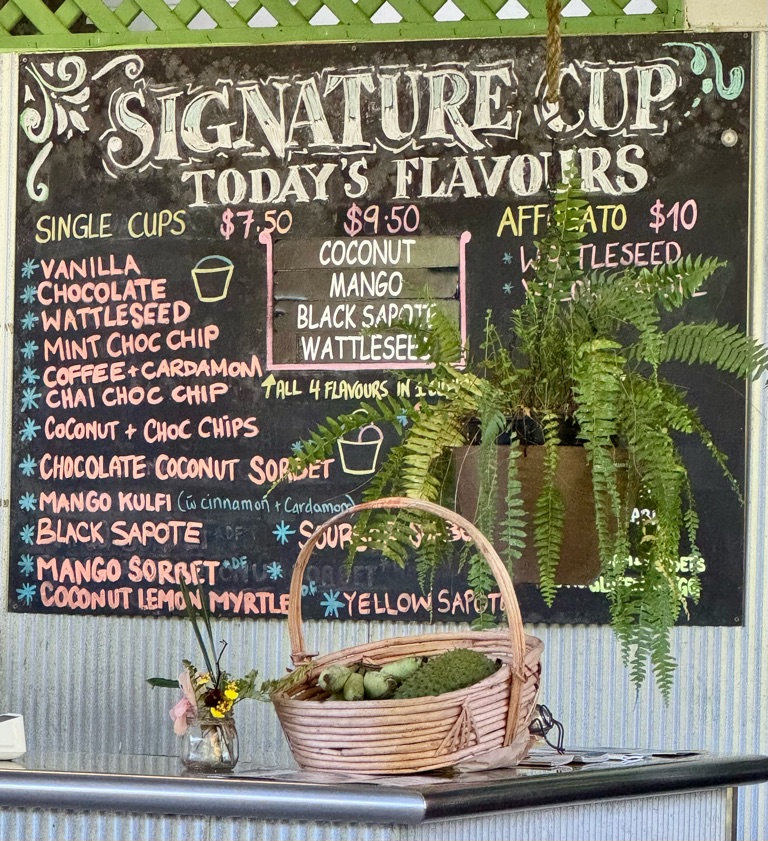 SIGNATURE CUP
TODAY'S FLAVOURS
SINGLE CUPS $7.50
*VANILLA
*CHOCOLATE
*WATTLESEED
*MINT CHOC CHIP
*COFFEE+CARDAMOM
*CHAI CHOC CHIP
*COCONUT + CHOC CHIPS
*CHOCOLATE COCONUT SORBET
*MANGO KULFI (w cinnamon + Cardamom)
*BLACK SAPOTE
*MANGO SORBET *DF
*COCONUT LEMON MYRTLE DF
*YELLOW SAPOTE
$9.50
COCONUT
MANGO
BLACK SAPOTE
WATTLESEED
↑ALL 4 FLAVOURS IN 1
AFFOGATO $10
*WATTLESEED